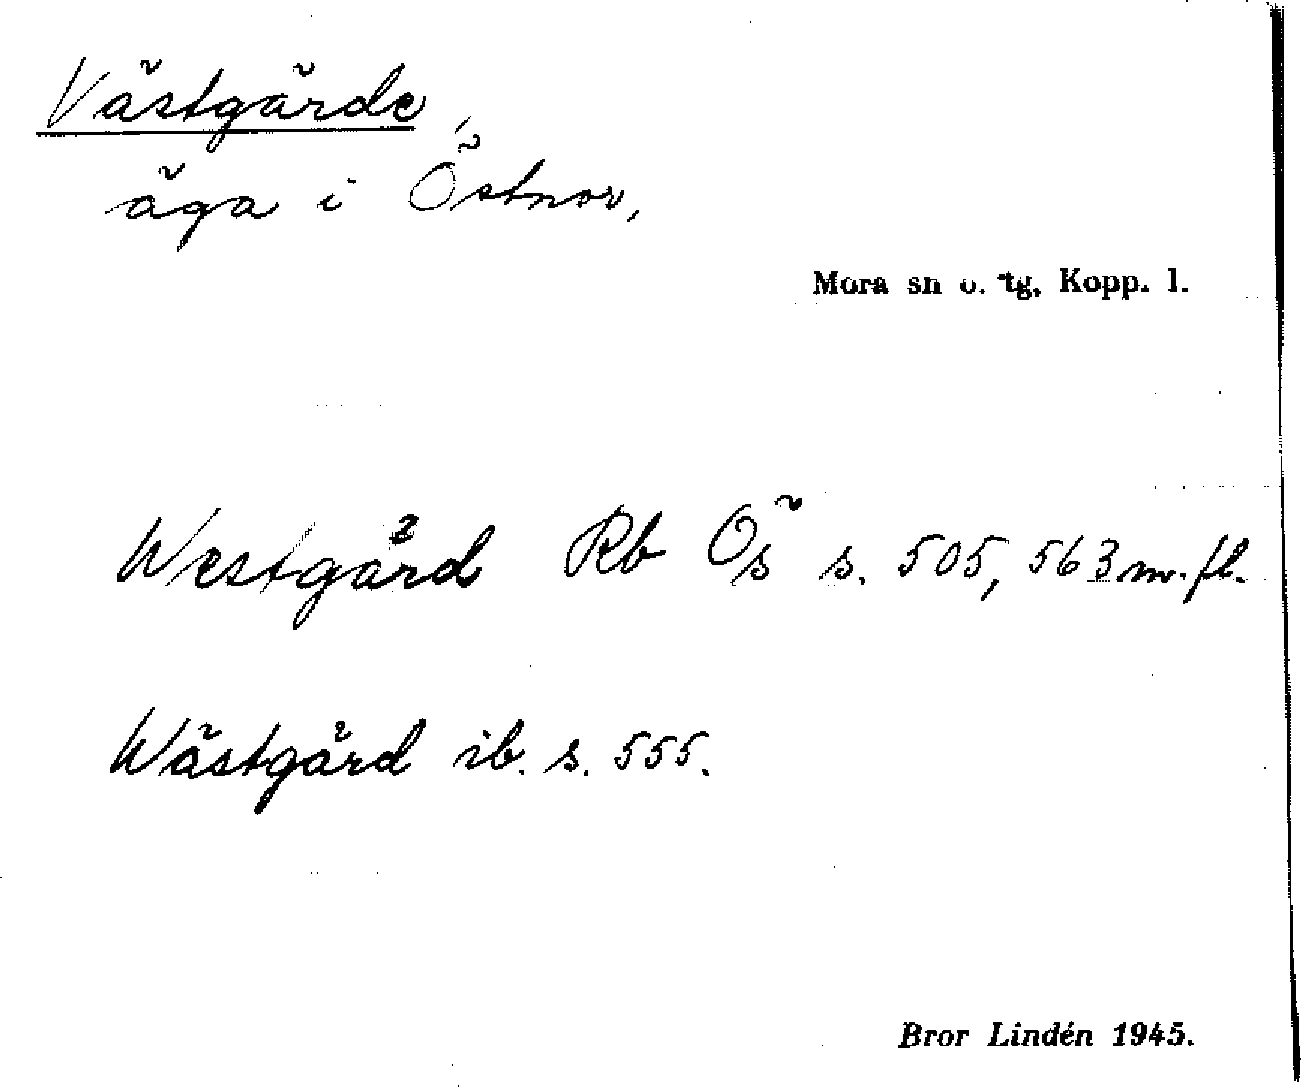 Västgärde,
äga i Östnor,
Mora sn o. tg, Kopp. l.
Westgård Rb Ös s. 505, 563 m. fl.
Wästgård ib. s. 555.
Bror Lindén 1945.